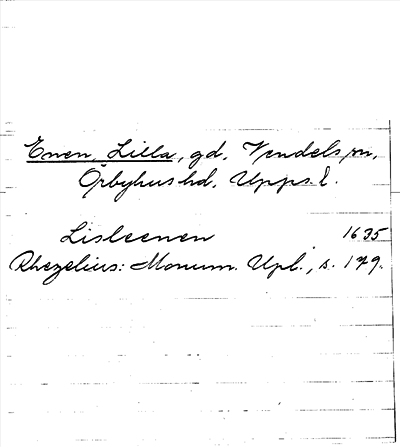 Enen, Lilla, gd, Vendels sn,
Örbyhus hd, Upps. l.
Lisleenen 1635
Rhezelius: Monum. Upl., s. 179.